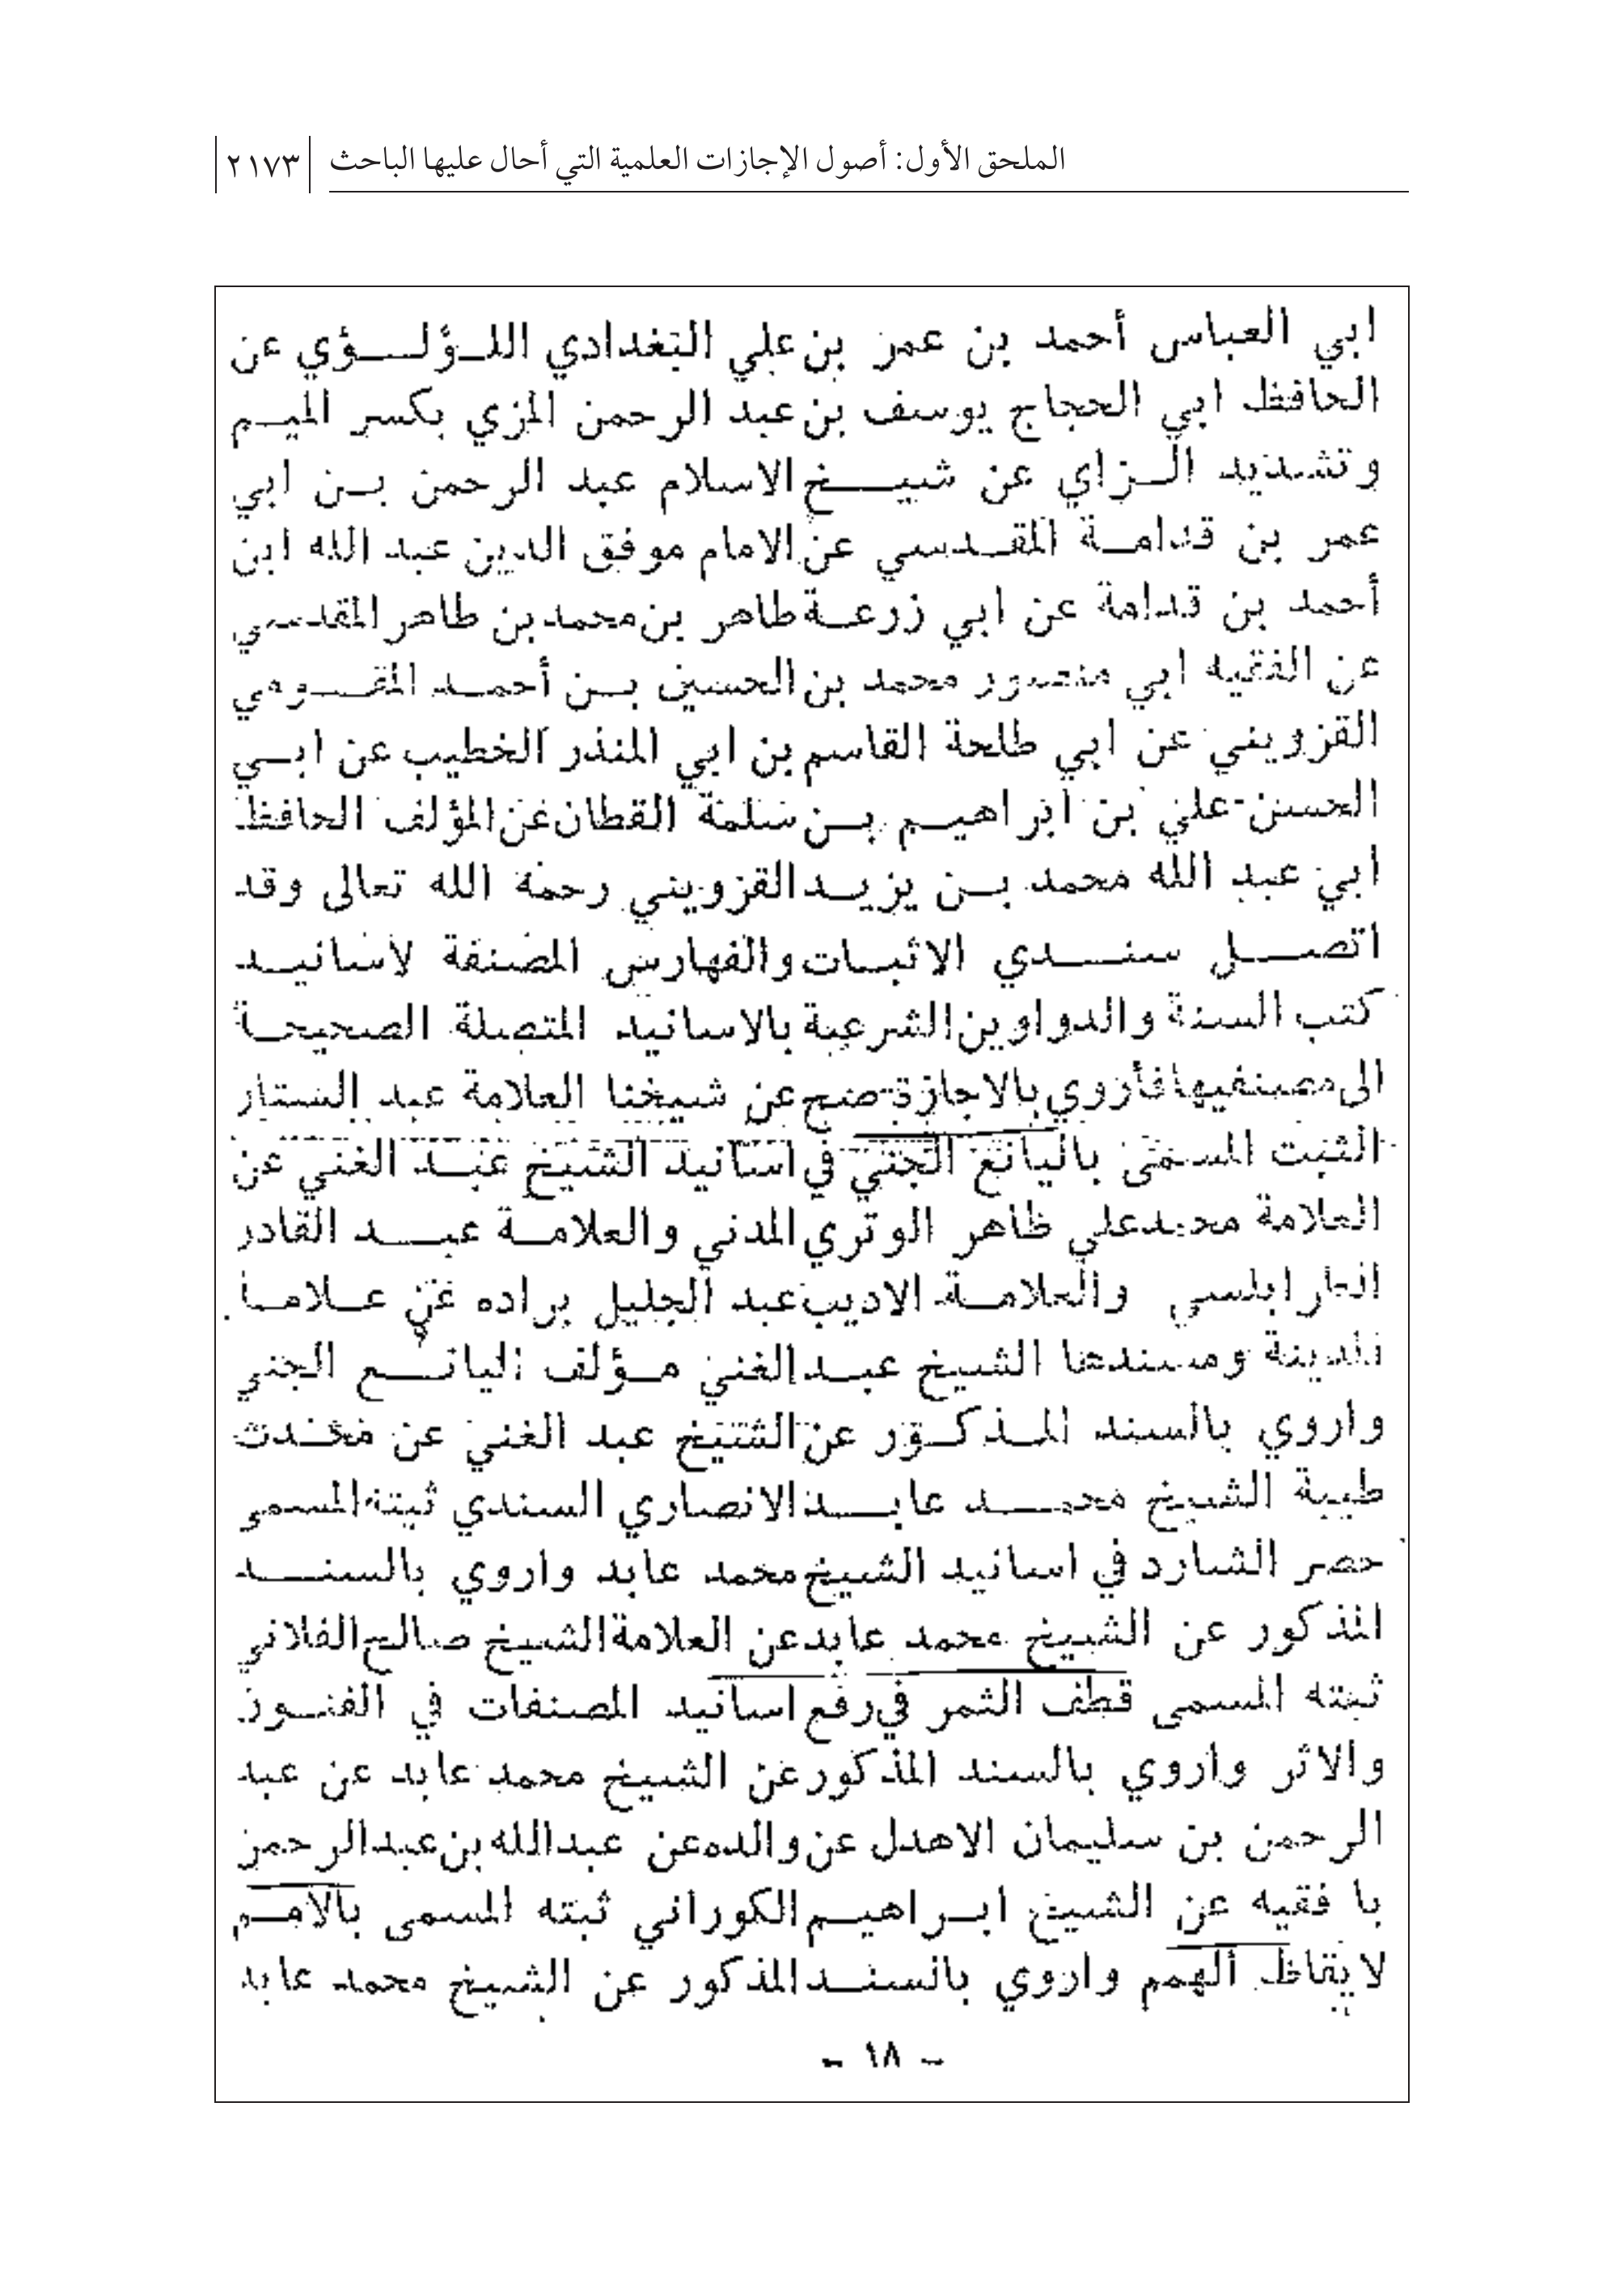 الملحق الأول: أصول الإجازات العلمية التي أحال عليها الباحث ٢١٧٣
ابي العباس أحمد بن عمر بن علي البغدادي اللـؤلـــؤي عن
الحافظ ابي الحجاج يوسف بن عبد الرحمن المزي بكسر الميـم
وتشديد الـزاي عن شيـــخ الاسلام عبد الرحمن بـن ابي
عمر بن قدامـة المقـدسي عن الامام موفق الدين عبد الله ابن
أحمد بن قدامة عن ابي زرعـة طاهر بن محمد بن طاهر المقدسي
عن الفقيه ابي منصور محمد بن الحسين بـن أحمـد المقـومي
القزويني عن ابي طلحة القاسم بن ابي المنذر الخطيب عن ابـي
الحسن علي بن ابراهيـم بـن سلمة القطان عن المؤلف الحافظ
ابي عبد الله محمد بـن يزيـد القزويني رحمه الله تعالى وقد
اتصـــل سنـــدي الاثبـات والفهارس المصنفة لاسانيـد
كتب السنة والدواوين الشرعية بالاسانيد المتصلة الصحيحـة
الى مصنفيها فأروي بالاجازة صح عن شيخنا العلامة عبد الستار
الثبت المسمى باليانع الجني في اسانيد الشيخ عبـد الغني عن
العلامة محمد علي ظاهر الوتري المدني والعلامـة عبـــد القادر
الطرابلسي والعلامـة الاديب عبد الجليل براده عن عـلامـا
المدينة ومسندها الشيخ عبـد الغني مـؤلف اليانـــع الجني
واروي بالسند المـذكـور عن الشيخ عبد الغني عن محـدث
طيبة الشيخ محمـــد عابـــد الانصاري السندي ثبته المسمى
حصر الشارد في اسانيد الشيخ محمد عابد واروي بالسنـــد
المذكور عن الشيخ محمد عابد عن العلامة الشيخ صالح الفلاني
ثبته المسمى قطف الثمر في رفع اسانيد المصنفات في الفنـون
والاثر واروي بالسند المذكور عن الشيخ محمد عابد عن عبد
الرحمن بن سليمان الاهدل عن والده عن عبدالله بن عبدالرحمن
با فقيه عن الشيخ ابـراهيـم الكوراني ثبته المسمى بالامـم
لايقاظ الهمم واروي بالسنـد المذكور عن الشيخ محمد عابد
- ١٨ -